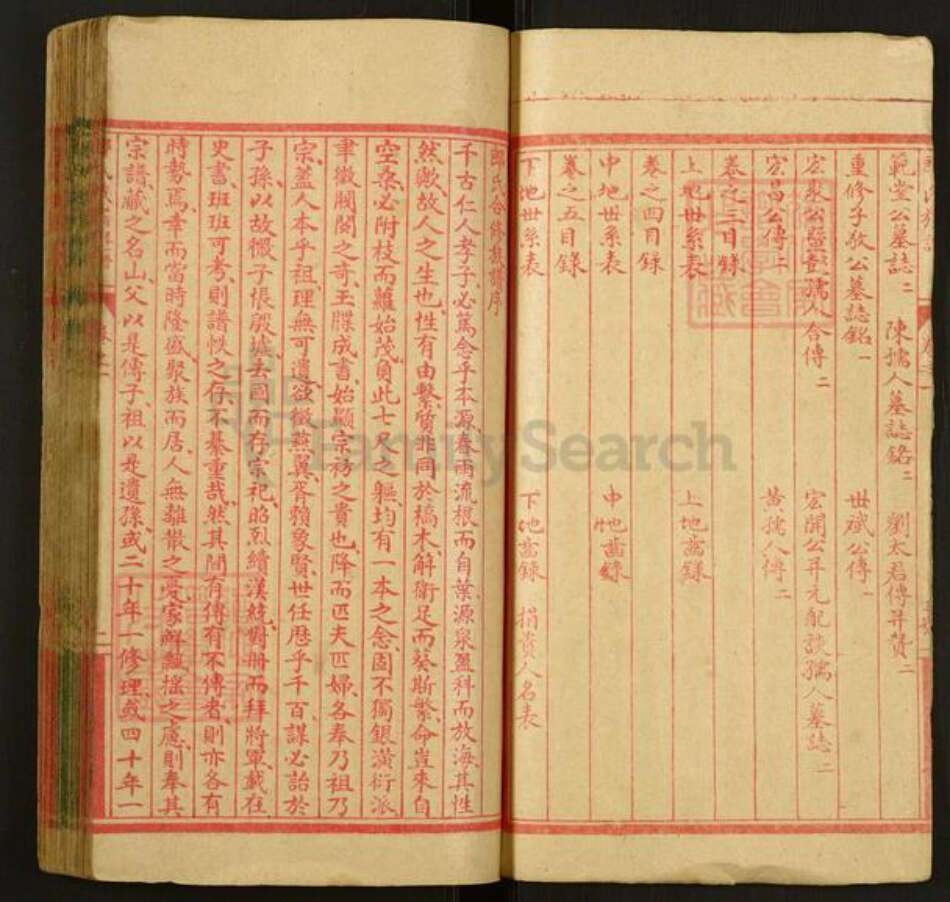 範堂公墓誌二 陳孺人墓誌銘二 劉太君傳并贊二
重修子敬公墓誌銘一 世斌公傳一
宏聚公暨 孺人合傳二 宏開公并元配談孺人墓誌二
宏昌公傳二 黃孺人傳二
卷之三目錄
上地世系表 上地齒錄
卷之四目錄
中地世系表 中地齒錄
卷之五目錄
下地世系表 下地齒錄 捐貲人名表
氏合修族譜序
千古仁人孝子、必篤念乎本源、春雨流根而自葉、源泉盈科而放海、其性
然歟、故人之生也、性有由繫、質非同於槁木、解衛足而葵斯繁、命豈來自
空桑、必附枝而蘿始茂、負此七尺之軀、均有一本之念、固不獨銀潢衍派、
聿徵閥閱之奇、玉牒成書、始顯宗祊之貴也、降而匹夫匹婦、各奉乃祖乃
宗、蓋人本乎祖、理無可遺、欲徵燕翼、胥賴象賢、世任歷乎千百、謀必詒於
子孫、以故微子悵殷墟、去國而存宗祀、昭烈續漢統、對冊而拜將軍、載在
史書、班班可考、則譜帙之存、不綦重哉、然其間有傳有不傳者、則亦各有
時勢焉、幸而當時隆盛、聚族而居、人無離散之憂、家鮮飄搖之慮、則奉其
宗譜、藏之名山、父以是傳子、祖以是遺孫、或二十年一修理、或四十年一
FamilySearch